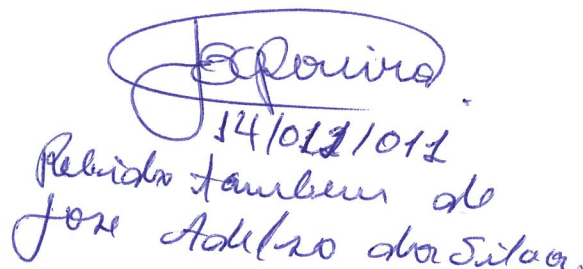 14/011/011
Rebido tambem de
Jose Adelso da Silva.